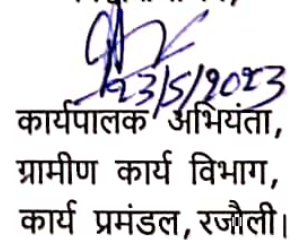 23/5/2023
कार्यपालक अभियंता,
ग्रामीण कार्य विभाग,
कार्य प्रमंडल, रजौली।